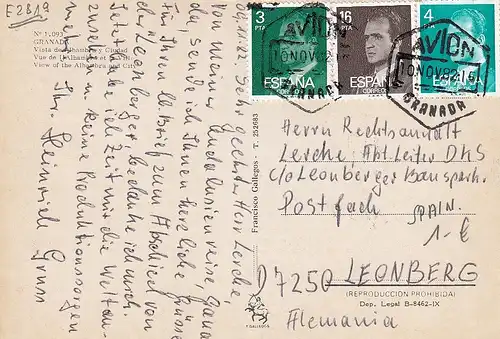 E2819
Nº 1.093
GRANADA
Vista de Alhambra y Ciudad
Vue de l'Alhambra et
View of the Alhambra and
9.11.82 Sehr geehrter Herr Lerche,
Von meiner Andalusienreise, Gana
da sende ich Ihnen herzliche Grüsse
Für Ihren lb. Brief zum Abschied von
der Leonberger, bedanke ich mich.
Jetzt habe ich Zeit mir die Welt an-
zusehen u. keine Produktionssorgen
mehr.
Ihr Heinrich Gruss
Francisco Gallegos - T. 252683
3
PTA
ESPAÑA
CORREO
16
PTA
ESPAÑA
CORREOS
4
PTA
ESPAÑA
AVION
10 NOV 82
GRANADA
AVION
10 NOV 82
GRANADA
Herrn Rechtsanwalt
Lerche, Abt. Leiter DKS
c/o Leonberger Bauspark.
Postfach
SPAIN.
1-€
D7250 LEONBERG
(REPRODUCCION PROHIBIDA)
Dep. Legal B-8462-IX
Alemania
F. GALLEGOS